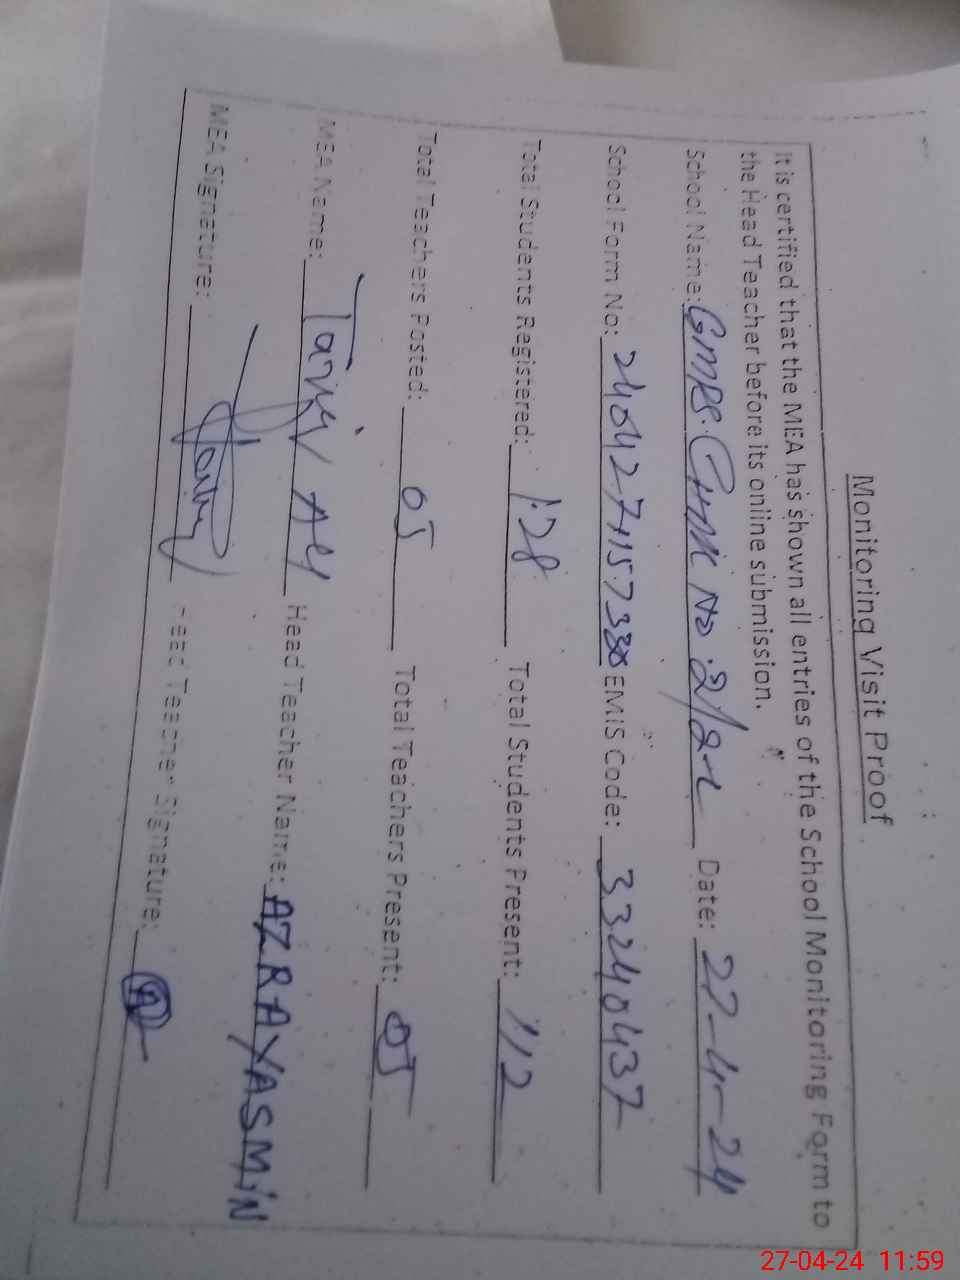 Monitoring Visit Proof
It is certified that the MEA has shown all entries of the School Monitoring Form to
the Head Teacher before its online submission.
School Name: GMPS. CHAK No 2/2-L Date: 27-4-24
School Form No: EMIS Code: 33240437
Total Students Registered: 128 Total Students Present: 112
Total Teachers Posted: 05 Total Teachers Present: 05
MEA Name: Tariq Ali Head Teacher Name: AZRA YASMIN
MEA Signature: Head Teacher Signature:
27-04-24 11:59